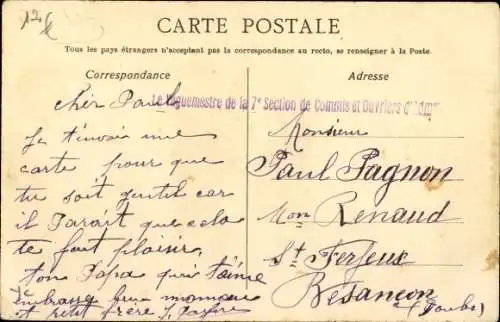 12 €
CARTE POSTALE
Tous les pays étrangers n'acceptant pas la correspondance au recto, se renseigner à la Poste.
Correspondance
Adresse
Le Vaguemestre de la 7e Section de Commis et Ouvriers d'Adm
cher Paul
Je t'envoi une
carte pour que
tu soit gentil car
il parait que cela
te fait plaisir,
ton Papa qui t'aime
embrasse bien maman
et petit frère
Monsieur
Paul Pagnon
Mon Renaud
St Ferjeux
Besançon
(Doubs)